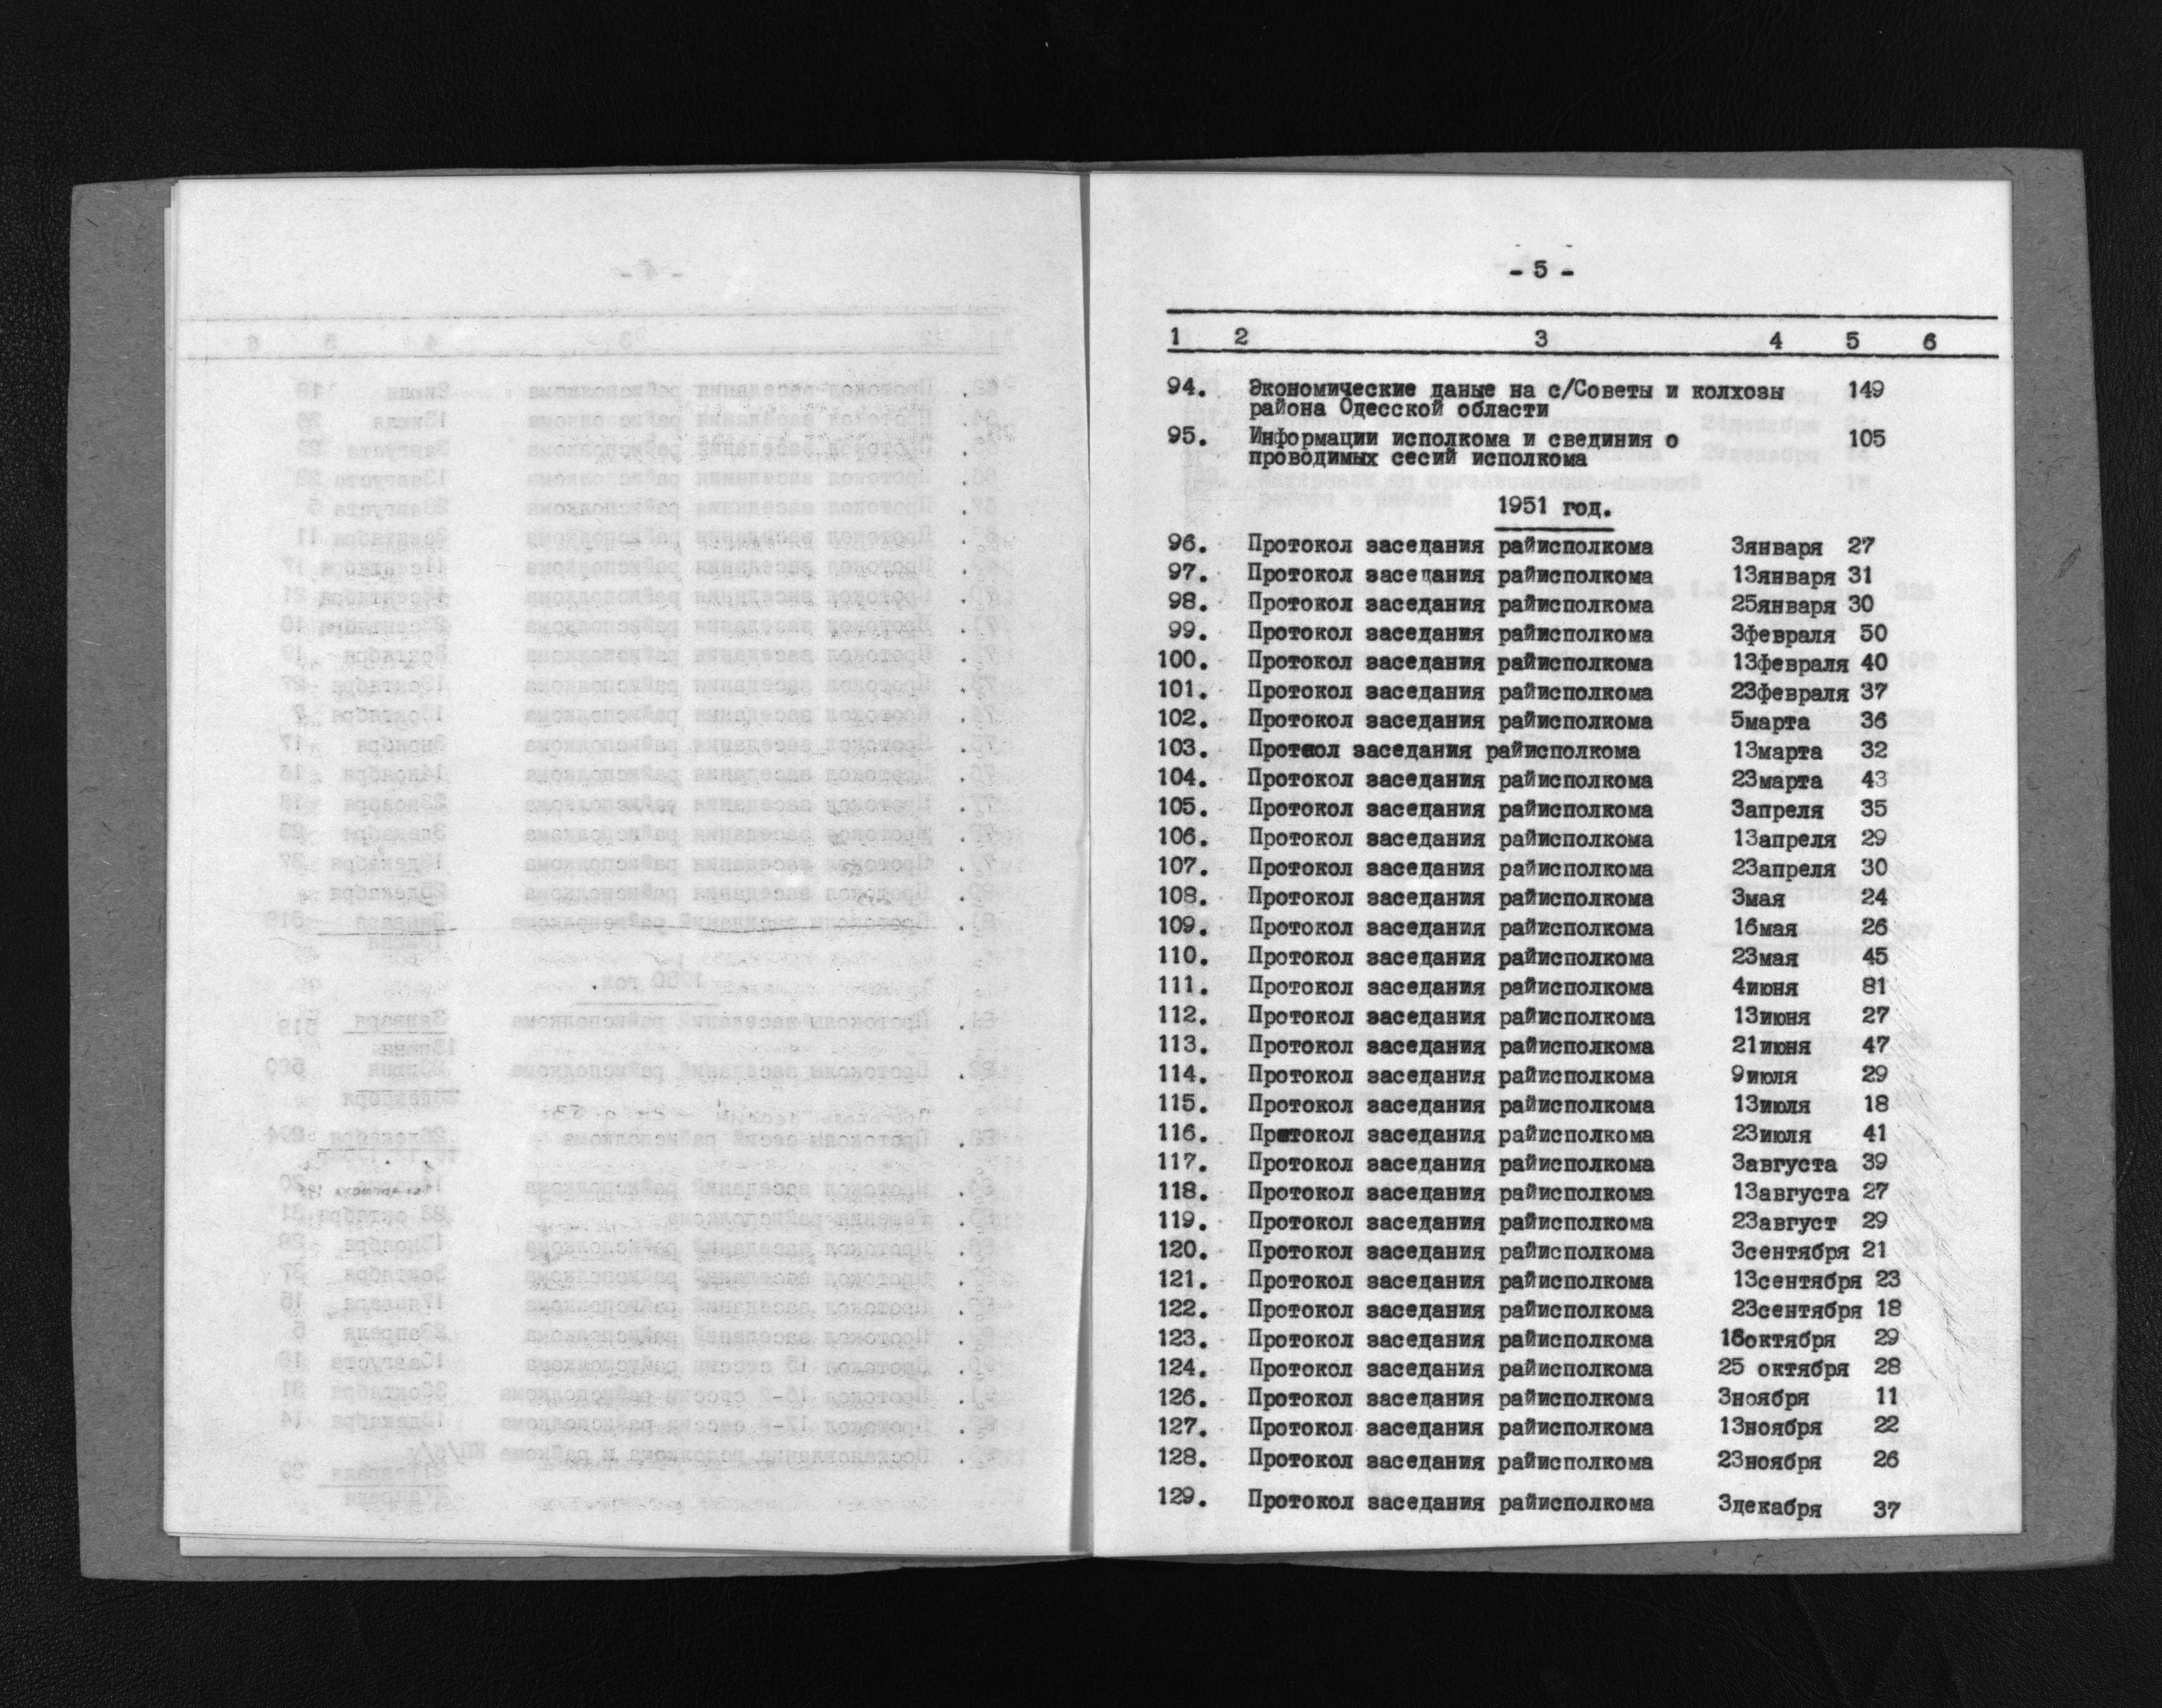 - 5 -
1 2 3 4 5 6
94. Экономические даные на с/Советы и колхозы 149
района Одесской области
95. Информации исполкома и свединия о 105
проводимых сесий исполкома
1951 год.
96. Протокол заседания райисполкома 3января 27
97. Протокол заседания райисполкома 13января 31
98. Протокол заседания райисполкома 25января 30
99. Протокол заседания райисполкома 3февраля 50
100. Протокол заседания райисполкома 13февраля 40
101. Протокол заседания райисполкома 23февраля 37
102. Протокол заседания райисполкома 5марта 36
103. Протокол заседания райисполкома 13марта 32
104. Протокол заседания райисполкома 23марта 43
105. Протокол заседания райисполкома 3апреля 35
106. Протокол заседания райисполкома 13апреля 29
107. Протокол заседания райисполкома 23апреля 30
108. Протокол заседания райисполкома 3мая 24
109. Протокол заседания райисполкома 16мая 26
110. Протокол заседания райисполкома 23мая 45
111. Протокол заседания райисполкома 4июня 81
112. Протокол заседания райисполкома 13июня 27
113. Протокол заседания райисполкома 21июня 47
114. Протокол заседания райисполкома 9июля 29
115. Протокол заседания райисполкома 13июля 18
116. Протокол заседания райисполкома 23июля 41
117. Протокол заседания райисполкома 3августа 39
118. Протокол заседания райисполкома 13августа 27
119. Протокол заседания райисполкома 23август 29
120. Протокол заседания райисполкома 3сентября 21
121. Протокол заседания райисполкома 13сентября 23
122. Протокол заседания райисполкома 23сентября 18
123. Протокол заседания райисполкома 16октября 29
124. Протокол заседания райисполкома 25 октября 28
126. Протокол заседания райисполкома 3ноября 11
127. Протокол заседания райисполкома 13ноября 22
128. Протокол заседания райисполкома 23ноября 26
129. Протокол заседания райисполкома 3декабря 37